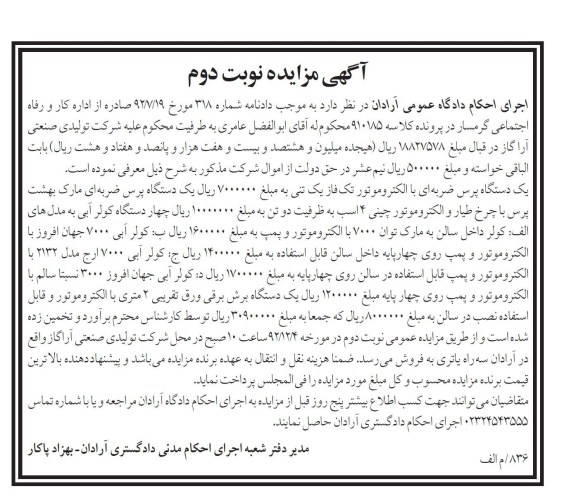 آگهی مزایده نوبت دوم
اجرای احکام دادگاه عمومی آرادان در نظر دارد به موجب دادنامه شماره ۳۱۸ مورخ ۹۲/۷/۱۹ صادره از اداره کار و رفاه
اجتماعی گرمسار در پرونده کلاسه ۹۱۰۱۸۵ محکوم له آقای ابوالفضل عامری به طرفیت محکوم علیه شرکت تولیدی صنعتی
آرا گاز در قبال مبلغ ۱۸۸۲۷۵۷۸ ریال (هیجده میلیون و هشتصد و بیست و هفت هزار و پانصد و هفتاد و هشت ریال) بابت
الباقی خواسته و مبلغ ۵۰۰۰۰۰ ریال نیم عشر در حق دولت از اموال شرکت مذکور به شرح ذیل معرفی نموده است.
یک دستگاه پرس ضربه‌ای با الکتروموتور تک فاز یک تنی به مبلغ ۷۰۰۰۰۰۰ ریال یک دستگاه پرس ضربه‌ای مارک بهشت
پرس با چرخ طیار و الکتروموتور چینی ۴ اسب به ظرفیت دو تن به مبلغ ۱۰۰۰۰۰۰۰ ریال چهار دستگاه کولر آبی به مدل های
الف: کولر داخل سالن به مارک توان ۷۰۰۰ با الکتروموتور و پمپ به مبلغ ۱۶۰۰۰۰۰ ریال ب: کولر آبی ۷۰۰۰ جهان افروز با
الکتروموتور و پمپ روی چهارپایه داخل سالن قابل استفاده به مبلغ ۱۴۰۰۰۰۰ ریال ج: کولر آبی ۷۰۰۰ ارج مدل ۲۱۳۲ با
الکتروموتور و پمپ قابل استفاده در سالن روی چهارپایه به مبلغ ۱۷۰۰۰۰۰ ریال د: کولر آبی جهان افروز ۳۰۰۰ نسبتا سالم با
الکتروموتور و پمپ روی چهار پایه مبلغ ۱۲۰۰۰۰۰ ریال یک دستگاه برش برقی ورق تقریبی ۲ متری با الکتروموتور و قابل
استفاده نصب در سالن به مبلغ ۸۰۰۰۰۰۰ ریال که جمعا به مبلغ ۳۰۹۰۰۰۰۰ ریال توسط کارشناس محترم برآورد و تخمین زده
شده است و از طریق مزایده عمومی نوبت دوم در مورخه ۹۲/۱۲/۴ ساعت ۱۰ صبح در محل شرکت تولیدی صنعتی آراگاز واقع
در آرادان سه راه یاتری به فروش می رسد. ضمنا هزینه نقل و انتقال به عهده برنده مزایده می‌باشد و پیشنهاددهنده بالاترین
قیمت برنده مزایده محسوب و کل مبلغ مورد مزایده را فی المجلس پرداخت نماید.
متقاضیان می توانند جهت کسب اطلاع بیشتر پنج روز قبل از مزایده به اجرای احکام دادگاه آرادان مراجعه و یا با شماره تماس
۰۲۳۲۴۵۴۳۵۵۵ اجرای احکام دادگستری آرادان حاصل نمایند.
مدیر دفتر شعبه اجرای احکام مدنی دادگستری آرادان-بهزاد پاکار
۸۳۶/م الف